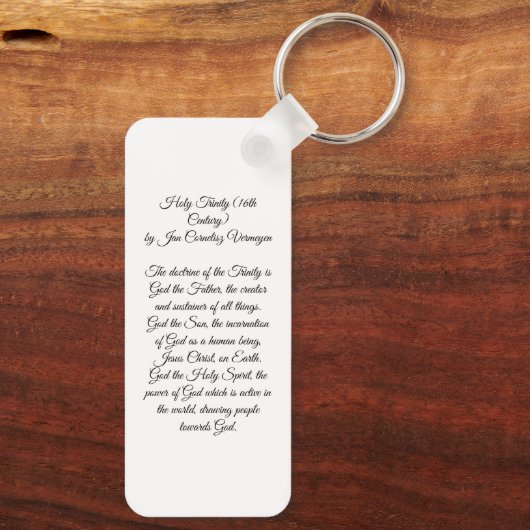 Holy Trinity (16th
Century)
by Jan Cornelisz Vermeyen
The doctrine of the Trinity is
God the Father, the creator
and sustainer of all things.
God the Son, the incarnation
of God as a human being,
Jesus Christ, on Earth.
God the Holy Spirit, the
power of God which is active in
the world, drawing people
towards God.